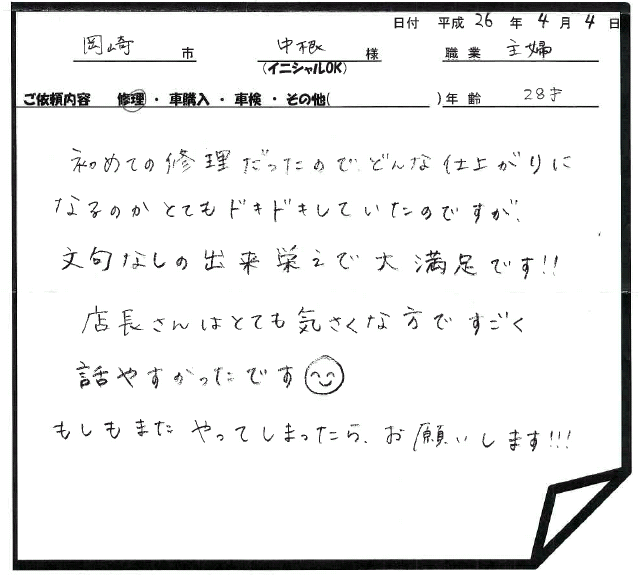 日付 平成 26 年 4 月 4 日
岡崎 市 中根 様 職業 主婦
(イニシャルOK)
ご依頼内容 修理・車購入・車検・その他( )年齢 28才
初めての修理だったので、どんな仕上がりに
なるのかとてもドキドキしていたのですが、
文句なしの出来栄えで大満足です!!
店長さんはとても気さくな方ですごく
話やすかったです
もしもまたやってしまったら、お願いします!!!